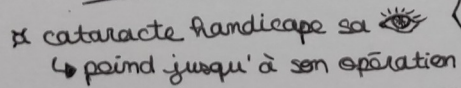 ¤ cataracte handicape sa 👁
↳ peind jusqu'à son opération